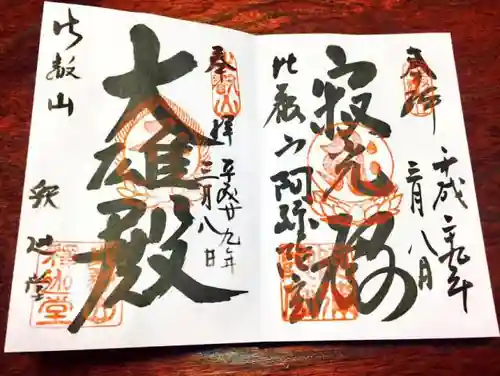 奉拝
平成二十九年
三月八日
寂光殿
比叡山 阿弥陀堂
奉拝
平成廿九年
三月八日
大雄殿
比叡山
釈迦堂
釋迦堂